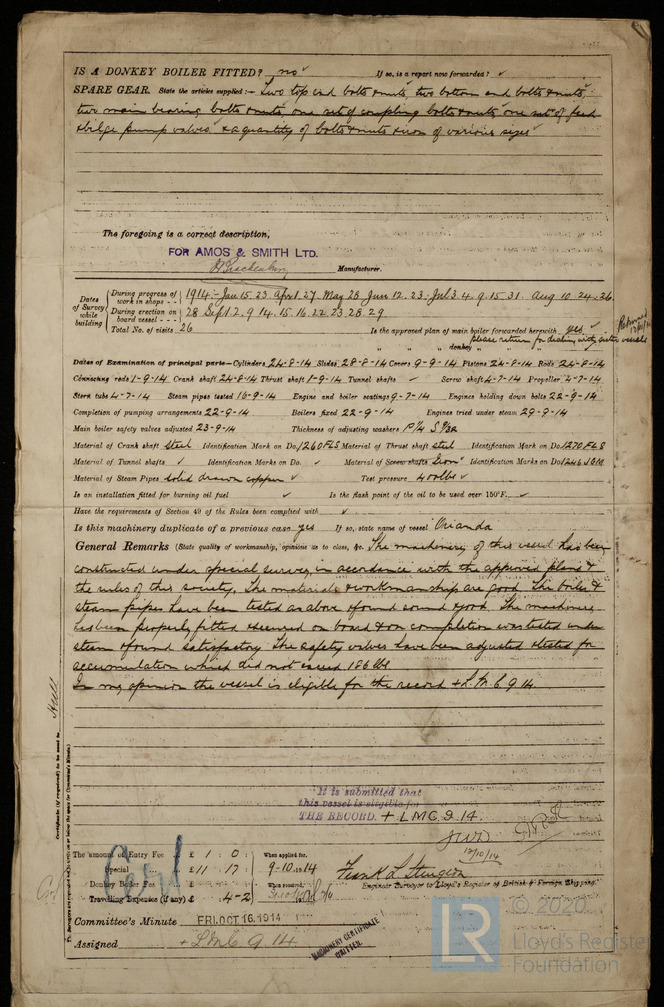 IS A DONKEY BOILER FITTED? no ✓ If so, is a report now forwarded? ✓
SPARE GEAR. State the articles supplied:— Two top end bolts & nuts, two bottom end bolts & nuts,
two main bearing bolts & nuts, one set of coupling bolts & nuts, one set of feed
& bilge pump valves & a quantity of bolts & nuts & iron of various sizes
The foregoing is a correct description,
FOR AMOS & SMITH LTD.
Manufacturer.
Dates of Survey while building
During progress of work in shops - - 1914:- Jan 15. 23. Apr 1. 27. May 28. Jun 12. 23. Jul 3. 4. 9. 15. 31. Aug 10. 24. 26.
During erection on board vessel - - - 28. Sept 1. 2. 9. 14. 15. 16. 22. 23. 28. 29
Total No. of visits 26 Is the approved plan of main boiler forwarded herewith yes ✓
please return for dealing with sister vessels
" " " donkey " " "
Dates of Examination of principal parts—Cylinders 24-8-14 Slides 28-8-14 Covers 9-9-14 Pistons 24-8-14 Rods 24-8-14
Connecting rods 1-9-14 Crank shaft 24-8-14 Thrust shaft 1-9-14 Tunnel shafts ✓ Screw shaft 4-7-14 Propeller 4-7-14
Stern tube 4-7-14 Steam pipes tested 16-9-14 Engine and boiler seatings 9-7-14 Engines holding down bolts 22-9-14
Completion of pumping arrangements 22-9-14 Boilers fixed 22-9-14 Engines tried under steam 29-9-14
Main boiler safety valves adjusted 23-9-14 Thickness of adjusting washers
Material of Crank shaft Steel Identification Mark on Do. 1260 FLS Material of Thrust shaft steel Identification Mark on Do. 1270 FLS
Material of Tunnel shafts ✓ Identification Marks on Do. ✓ Material of Screw shafts Iron Identification Marks on Do. 1246
Material of Steam Pipes solid drawn copper ✓ Test pressure 400 lbs ✓
Is an installation fitted for burning oil fuel ✓ Is the flash point of the oil to be used over 150°F. ✓
Have the requirements of Section 49 of the Rules been complied with ✓
Is this machinery duplicate of a previous case yes If so, state name of vessel Orianda
General Remarks (State quality of workmanship, opinions as to class, &c. The machinery of this vessel has been
constructed under special survey, in accordance with the approved plans &
the rules of this society. The materials & workmanship are good. The boiler &
steam pipes have been tested as above & found sound & good. The machinery
has been properly fitted & secured on board & on completion was tested under
steam & found satisfactory. The safety valves have been adjusted & tested for
accumulation which did not exceed 186 lbs
In my opinion the vessel is eligible for the record + L.M.C. 9.14.
Hull
Certificate (if required) to be sent to
It is submitted that
this vessel is eligible for
THE RECORD. + LMC 9.14.
12/10/14
The amount of Entry Fee .. £ 1 : 0 : When applied for,
Special .. .. £ 11 : 17 : 9-10-1914
Donkey Boiler Fee .. .. £ : : When received,
Travelling Expenses (if any) £ : 4-2
Frank L Sturgeon
Engineer Surveyor to Lloyd's Register of British & Foreign Shipping.
Committee's Minute FRI. OCT 16. 1914
Assigned + L.M.C. 9.14
MACHINERY CERTIFICATE
WRITTEN.
LR
© 2020
Lloyd's Register
Foundation